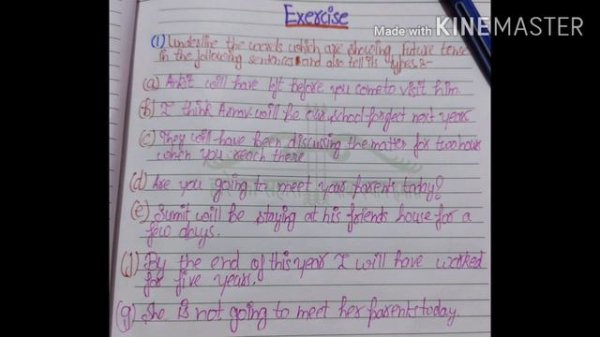 Exercise
Made with KINEMASTER
(1) Underline the words which are showing future tense
in the following sentences and also tell its types :-
(a) Ankit will have left before you come to visit him
(b) I think Annu will be our school prefect next year
(c) They will have been discussing the matter for two hours
when you reach there
(d) Are you going to meet your parents today?
(e) Sumit will be staying at his friends house for a
few days.
(f) By the end of this year I will have worked
for five years.
(g) She is not going to meet her parents today.